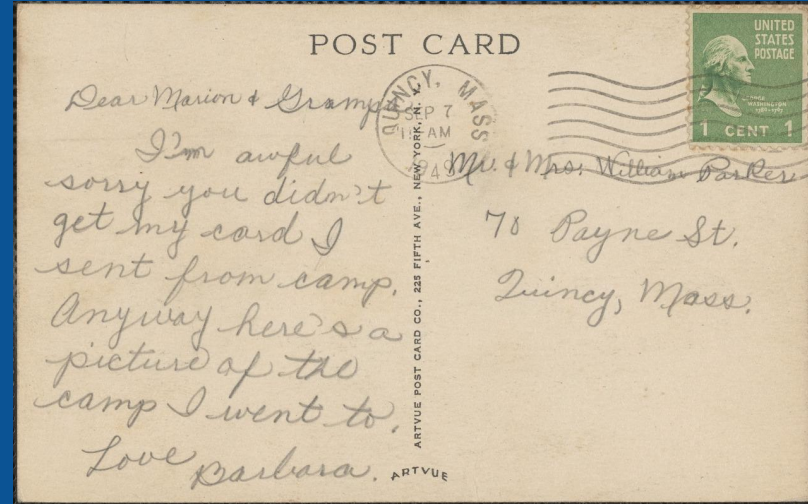 POST CARD
Dear Marion & Gramp
I'm awful
sorry you didn't
get my card I
sent from camp.
Anyway here's a
picture of the
camp I went to.
Love
Barbara.
ARTVUE POST CARD CO., 225 FIFTH AVE., NEW YORK, N. Y.
ARTVUE
QUINCY, MASS
SEP 7
AM
UNITED
STATES
POSTAGE
GEORGE
WASHINGTON
1 CENT 1
Mr. & Mrs. William Parker
70 Payne St.
Quincy, Mass.